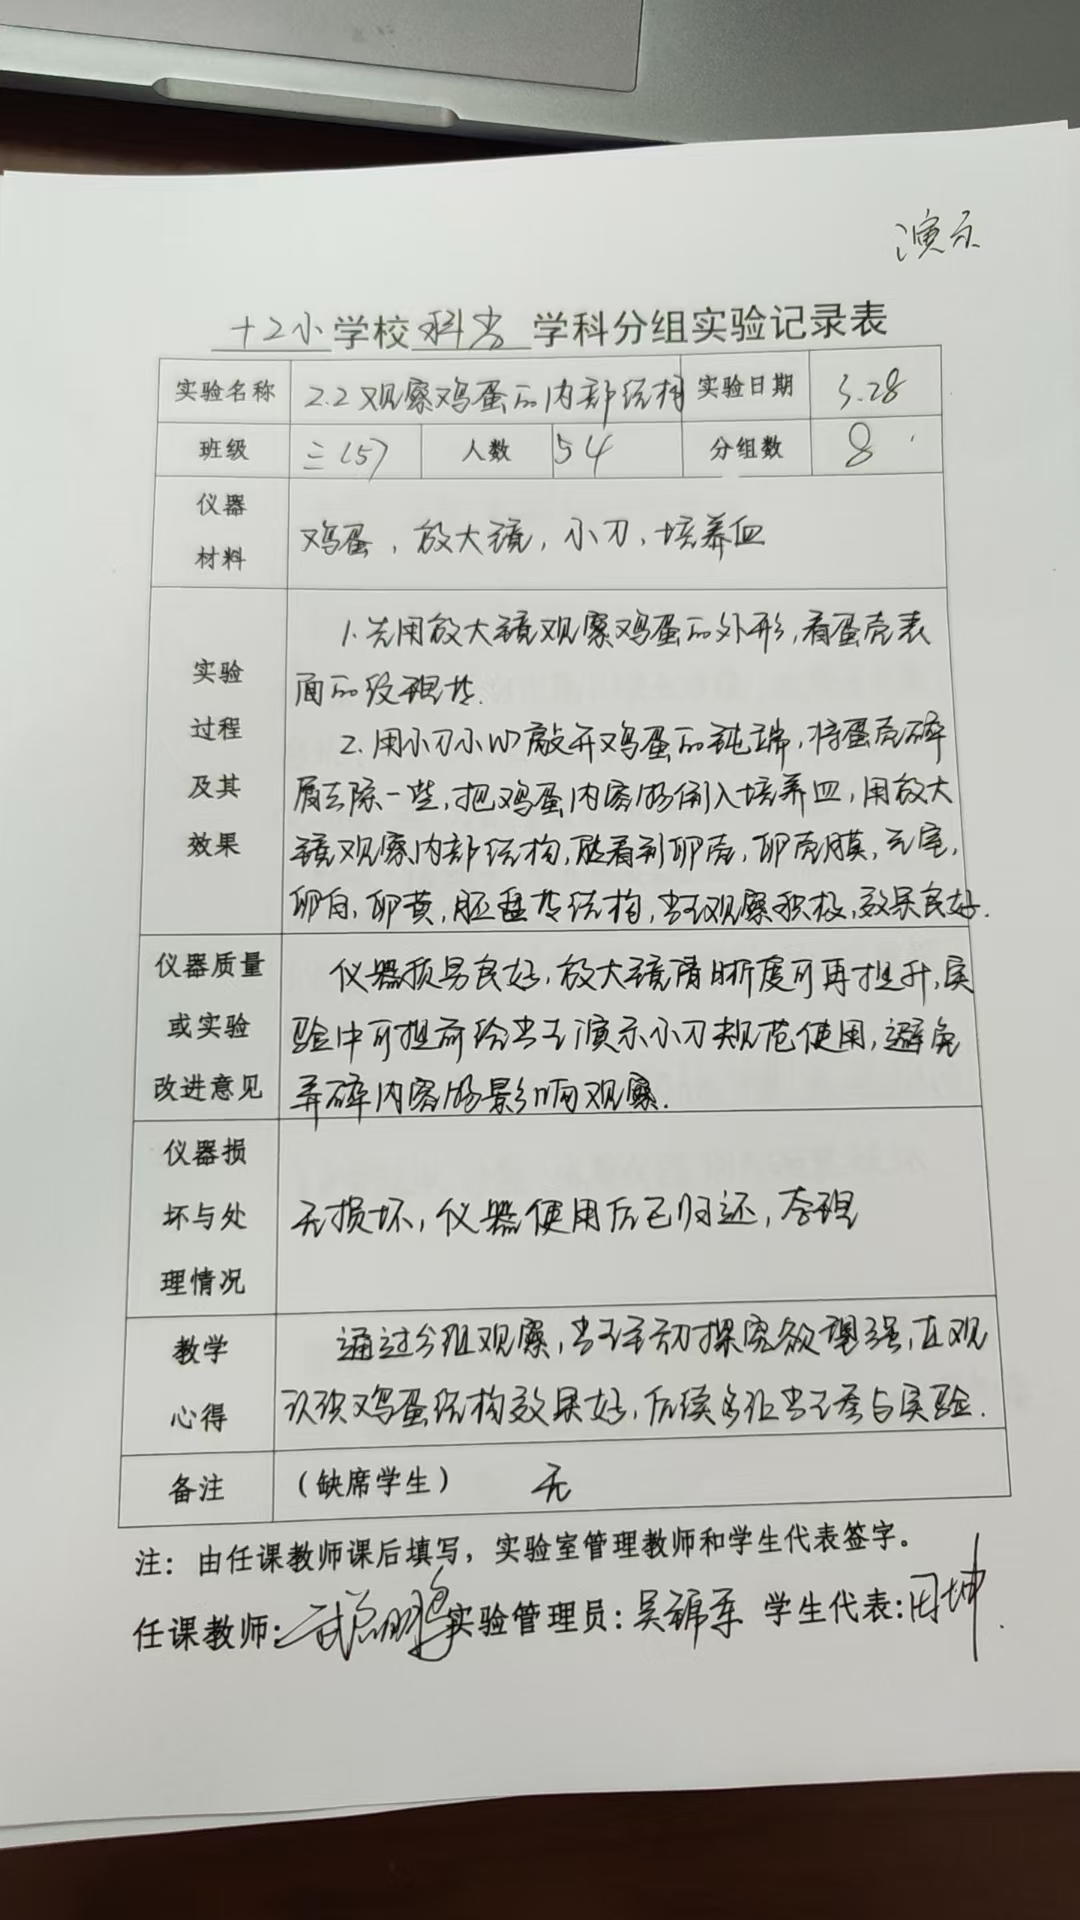 演示
十2小学校科学学科分组实验记录表
实验名称 2.2观察鸡蛋的内部结构 实验日期 3.28
班级 三(5) 人数 54 分组数 8
仪器
材料
鸡蛋，放大镜，小刀，培养皿
实验
过程
及其
效果
1.先用放大镜观察鸡蛋的外形，看蛋壳表
面的纹理等.
2.用小刀小心敲开鸡蛋的钝端，将蛋壳碎
屑去除一些，把鸡蛋内容物倒入培养皿，用放大
镜观察内部结构，能看到卵壳，卵壳膜，气室，
卵白，卵黄，胚盘等结构，学生观察积极，效果良好.
仪器质量
或实验
改进意见
仪器质量良好，放大镜清晰度可再提升，实
验中可提前给学生演示小刀规范使用，避免
弄碎内容物影响观察.
仪器损
坏与处
理情况
无损坏，仪器使用后已归还，整理
教学
心得
通过分组观察，学生主动探究欲增强，直观
认识鸡蛋结构效果好，后续多让学生参与实验.
备注 （缺席学生） 无
注：由任课教师课后填写，实验室管理教师和学生代表签字。
任课教师： 实验管理员：吴锦军 学生代表：田坤